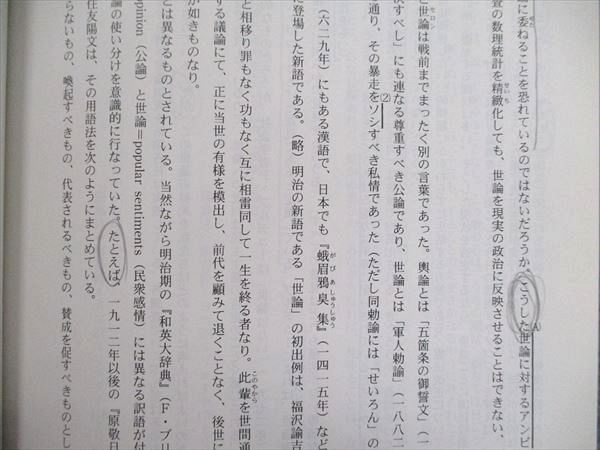 に委ねることを恐れているのではないだろうか。こうした世論に対するアンビ
(A)
査の数理統計を精緻化しても、世論を現実の政治に反映させることはできない、
せいち
と世論は戦前までまったく別の言葉であった。輿論とは「五箇条の御誓文」（一
決すべし」にも連なる尊重すべき公論であり、世論とは「軍人勅諭」（一八八二
通り、その暴走をソシすべき私情であった（ただし同勅諭には「せいろん」の
(2)
（六二九年）にもある漢語で、日本でも『蛾眉鴉臭集』（一四一五年）など
がびあしゅうしゅう
に登場した新語である。（略）明治の新語である「世論」の初出例は、福沢諭吉
と相移り罪もなく功もなく互に相雷同して一生を終る者なり。此輩を世間通
このやから
する議論にて、正に当世の有様を模出し、前代を顧みて退くことなく、後世に
が如きものなり。
とは異なるものとされている。当然ながら明治期の『和英大辞典』（Ｆ・ブリ
opinion（公論）と世論＝popular sentiments（民衆感情）には異なる訳語が付
論の使い分けを意識的に行なっていた。たとえば、一九一二年以後の『原敬日
住友陽文は、その用語法を次のようにまとめている。
らないもの、喚起すべきもの、代表されるべきもの、賛成を促すべきものとし